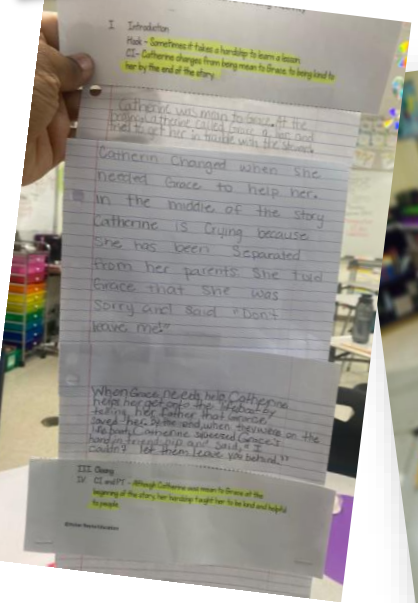 I Introduction
Hook - Sometimes it takes a hardship to learn a lesson.
CI - Catherine changes from being mean to Grace, to being kind to
her by the end of the story.
Catherine was mean to Grace. At the
Catherine called Grace a liar and
tried to get her in trouble with the
Catherin Changed when she
needed Grace to help her.
In the middle of the story
Catherine is Crying because
She has been Separated
from her parents. She told
Grace that She was
Sorry and said "Don't
leave me."
When Grace needs help, Catherine
helps her get onto the lifeboat by
telling her father that Grace
saved her. By the end, when they were on the
lifeboat, Catherine squeezed Grace's
hand in friendship and said, "I
couldn't let them leave you behind."
III Closing
IV CI and PT - Although Catherine was mean to Grace at the
beginning of the story, her hardship taught her to be kind and helpful
to people.
Education